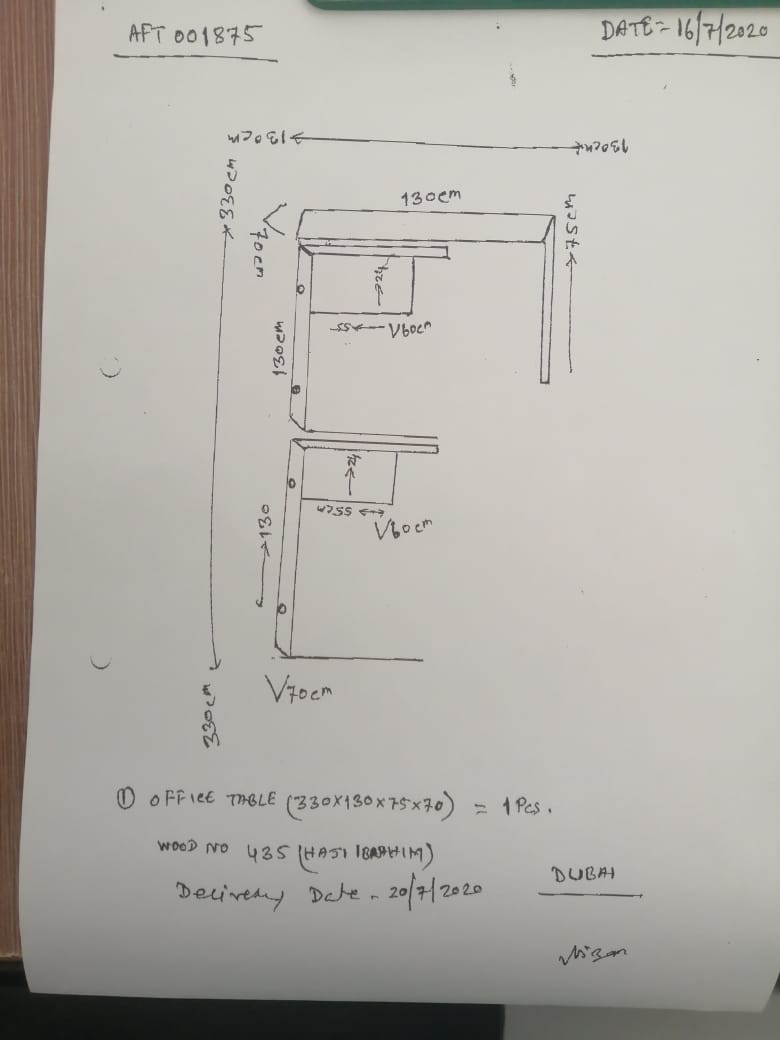 AFT 001875
DATE= 16/7/2020
130cm
130cm
330cm
130cm
75cm
70cm
24
55
V60cm
130cm
24
55cm
V60cm
130
V70cm
330cm
① OFFICE TABLE (330X130X75X70) = 1 Pcs.
WOOD NO 435 (HAJI IBRAHIM)
Delivery Date - 20/7/2020
DUBAI